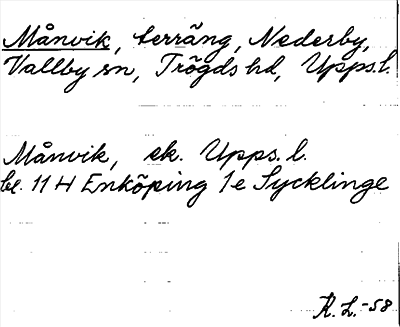 Månvik, terräng, Nederby,
Vallby sn, Trögds hd, Upps. l.
Månvik, ek. Upps. l.
bl. 11 H Enköping 1e Sycklinge
R. L. -58